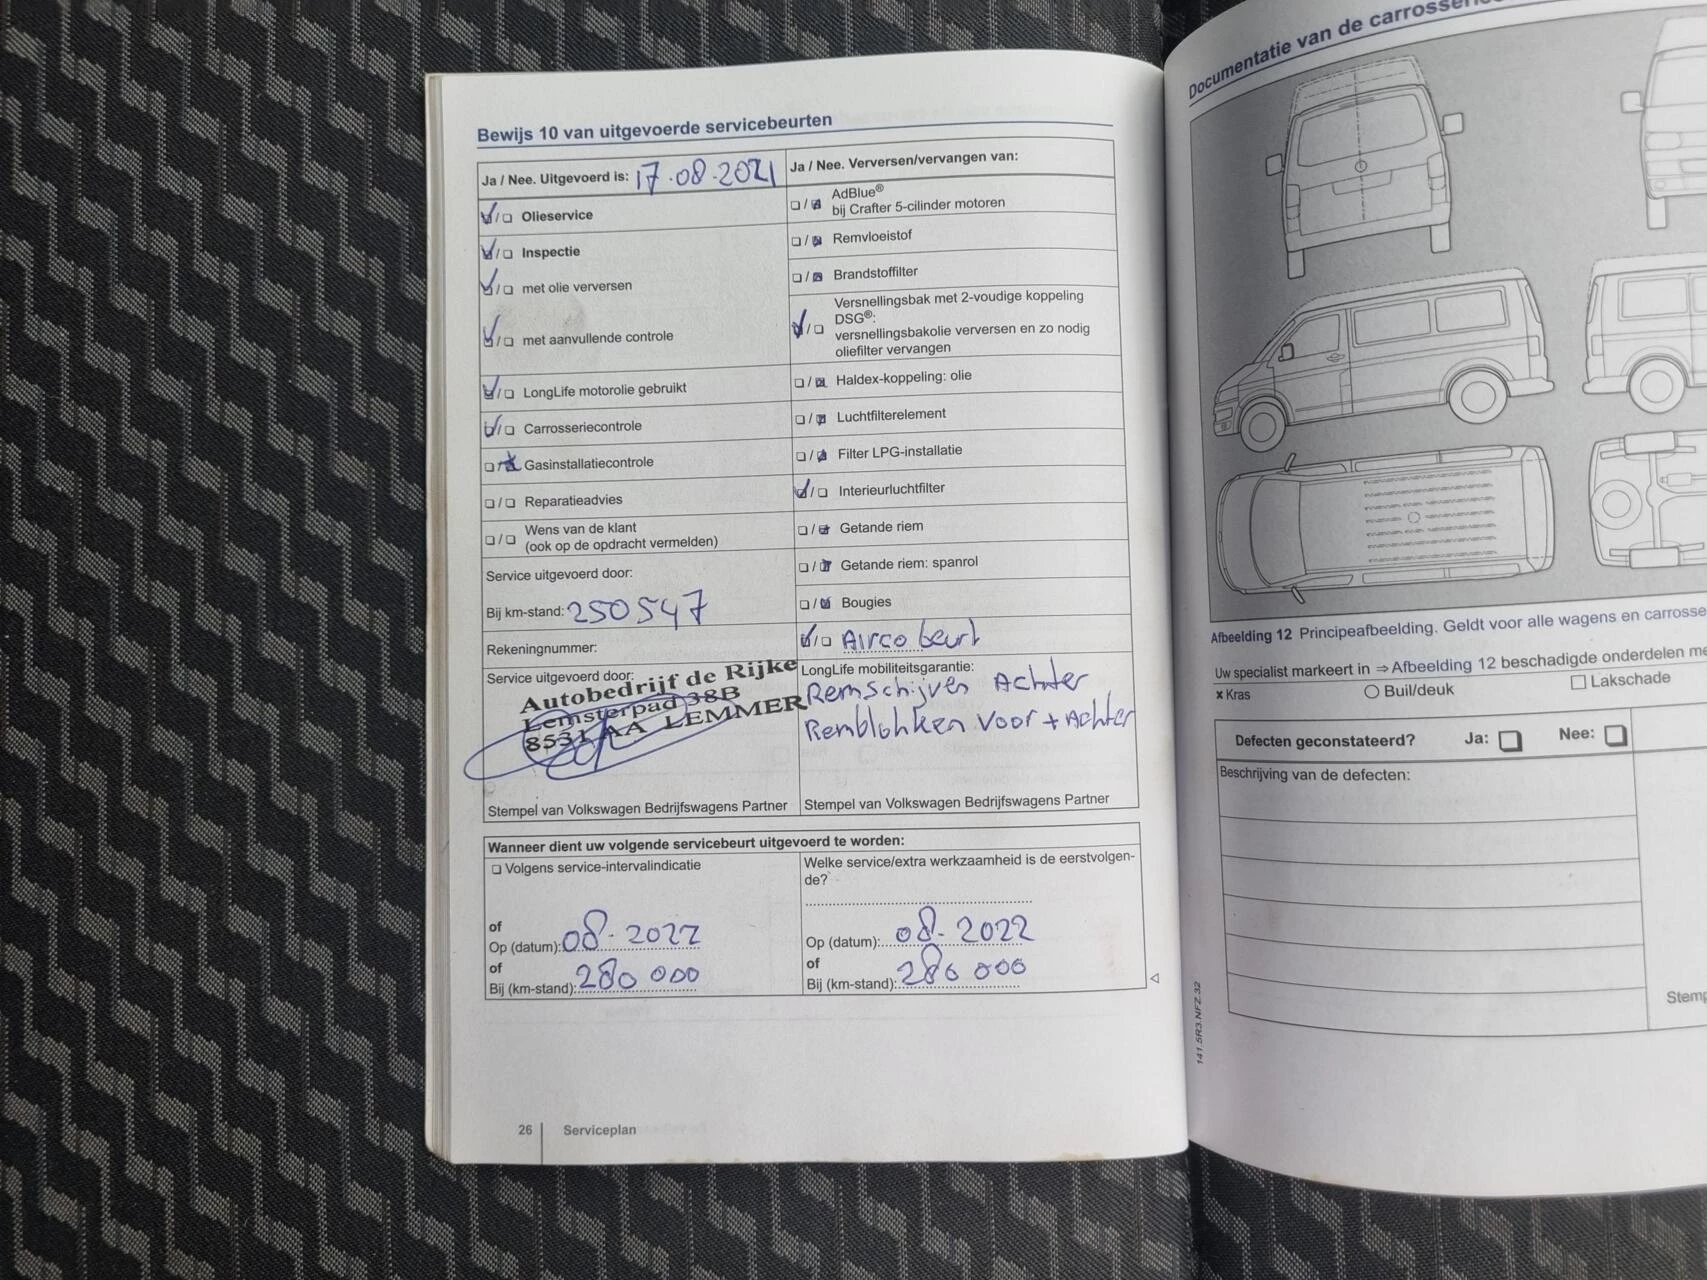 Bewijs 10 van uitgevoerde servicebeurten
Ja / Nee. Uitgevoerd is: 17-08-2021
Olieservice
Inspectie
met olie verversen
met aanvullende controle
LongLife motorolie gebruikt
Carrosseriecontrole
Gasinstallatiecontrole
Reparatieadvies
Wens van de klant
(ook op de opdracht vermelden)
Service uitgevoerd door:
Bij km-stand: 250547
Rekeningnummer:
Service uitgevoerd door:
Autobedrijf de Rijke
Lemsterpad 38B
8531 AA LEMMER
Stempel van Volkswagen Bedrijfswagens Partner
Ja / Nee. Verversen/vervangen van:
AdBlue®
bij Crafter 5-cilinder motoren
Remvloeistof
Brandstoffilter
Versnellingsbak met 2-voudige koppeling
DSG®:
versnellingsbakolie verversen en zo nodig
oliefilter vervangen
Haldex-koppeling: olie
Luchtfilterelement
Filter LPG-installatie
Interieurluchtfilter
Getande riem
Getande riem: spanrol
Bougies
Airco beurt
LongLife mobiliteitsgarantie:
Remschijven Achter
Remblokken voor + Achter
Stempel van Volkswagen Bedrijfswagens Partner
Wanneer dient uw volgende servicebeurt uitgevoerd te worden:
Volgens service-intervalindicatie
of
Op (datum): 08-2022
of
Bij (km-stand): 280 000
Welke service/extra werkzaamheid is de eerstvolgen-
de?
Op (datum): 08-2022
of
Bij (km-stand): 280 000
26 Serviceplan
Documentatie van de
Afbeelding 12 Principeafbeelding. Geldt voor alle wagens en
Uw specialist markeert in ⇒ Afbeelding 12 beschadigde onderdelen
x Kras Buil/deuk Lakschade
Defecten geconstateerd? Ja: Nee:
Beschrijving van de defecten:
141.5R3.NFZ.32